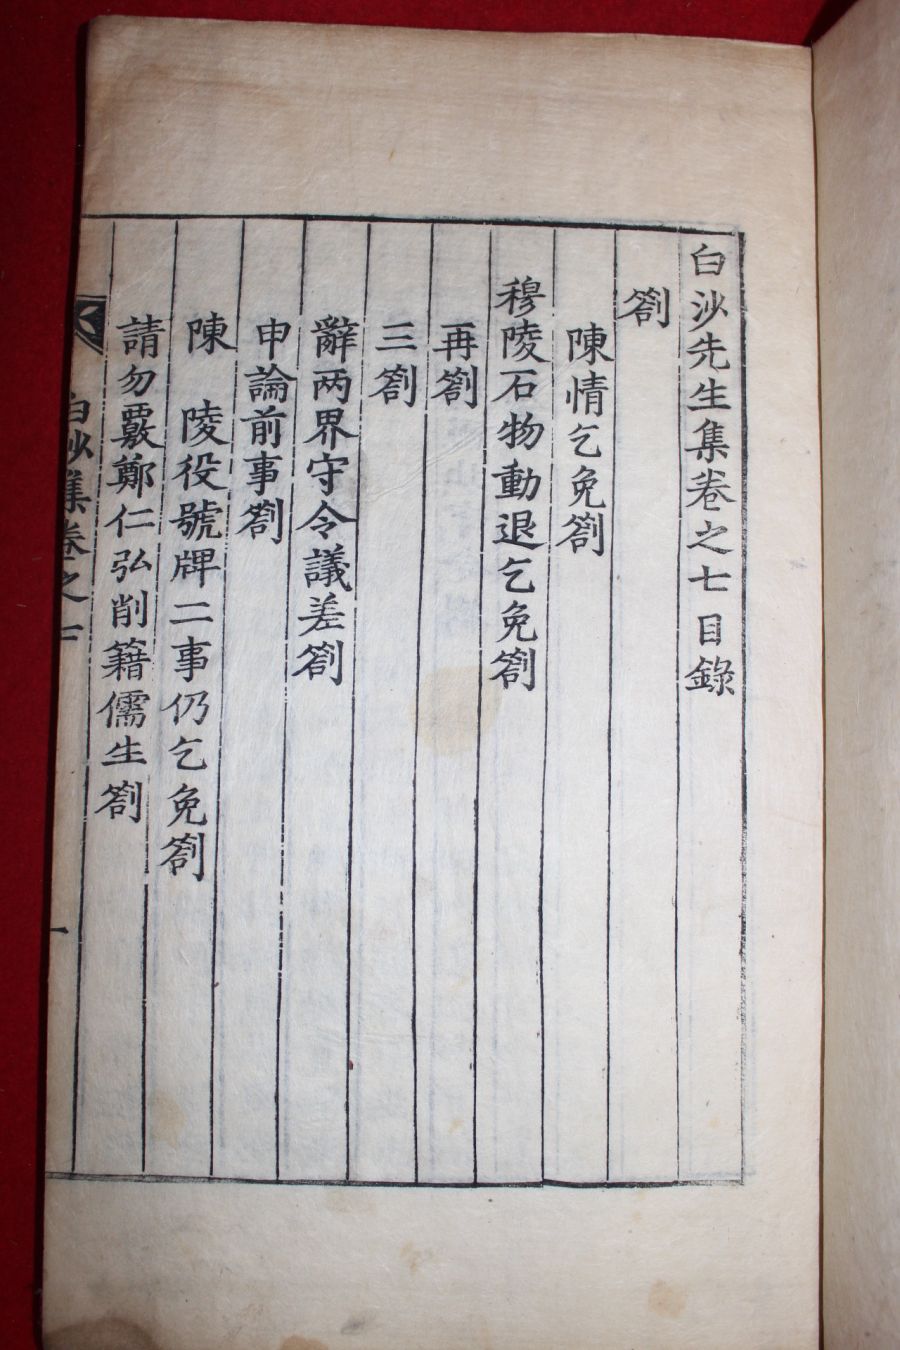 白沙先生集卷之七目錄
劄
陳情乞免劄
穆陵石物動退乞免劄
再劄
三劄
辭两界守令議差劄
申論前事劄
陳　陵役號牌二事仍乞免劄
請勿覈鄭仁弘削籍儒生劄
白沙集卷之七
一